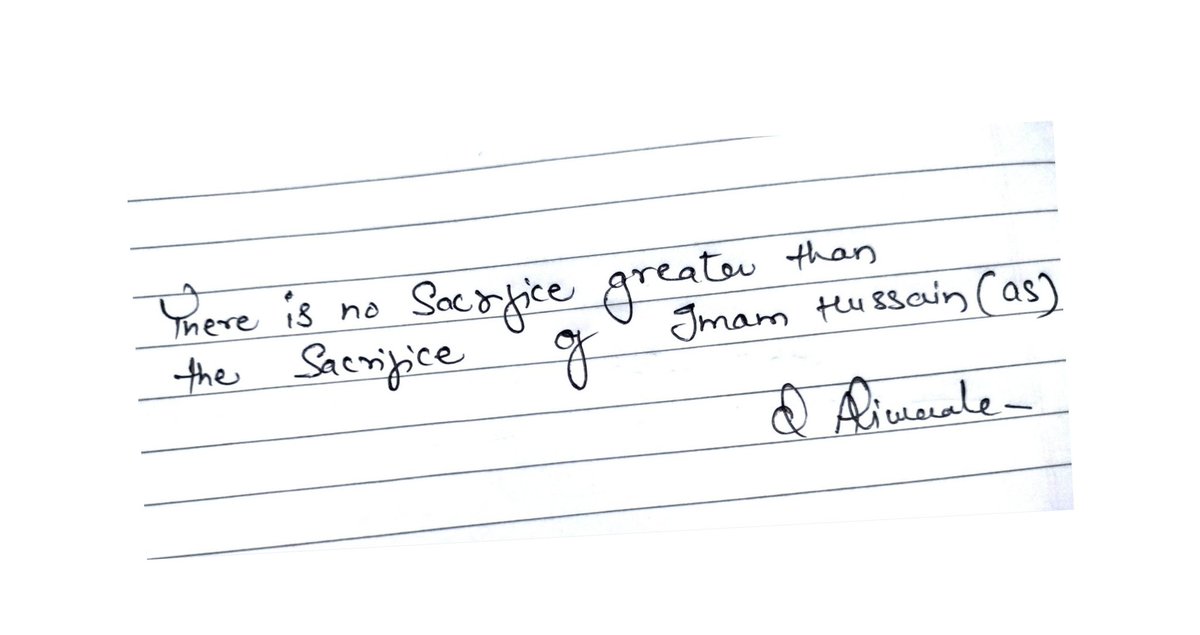 There is no Sacrifice greater than
the Sacrifice of Imam Hussain (as)
Aliwale -